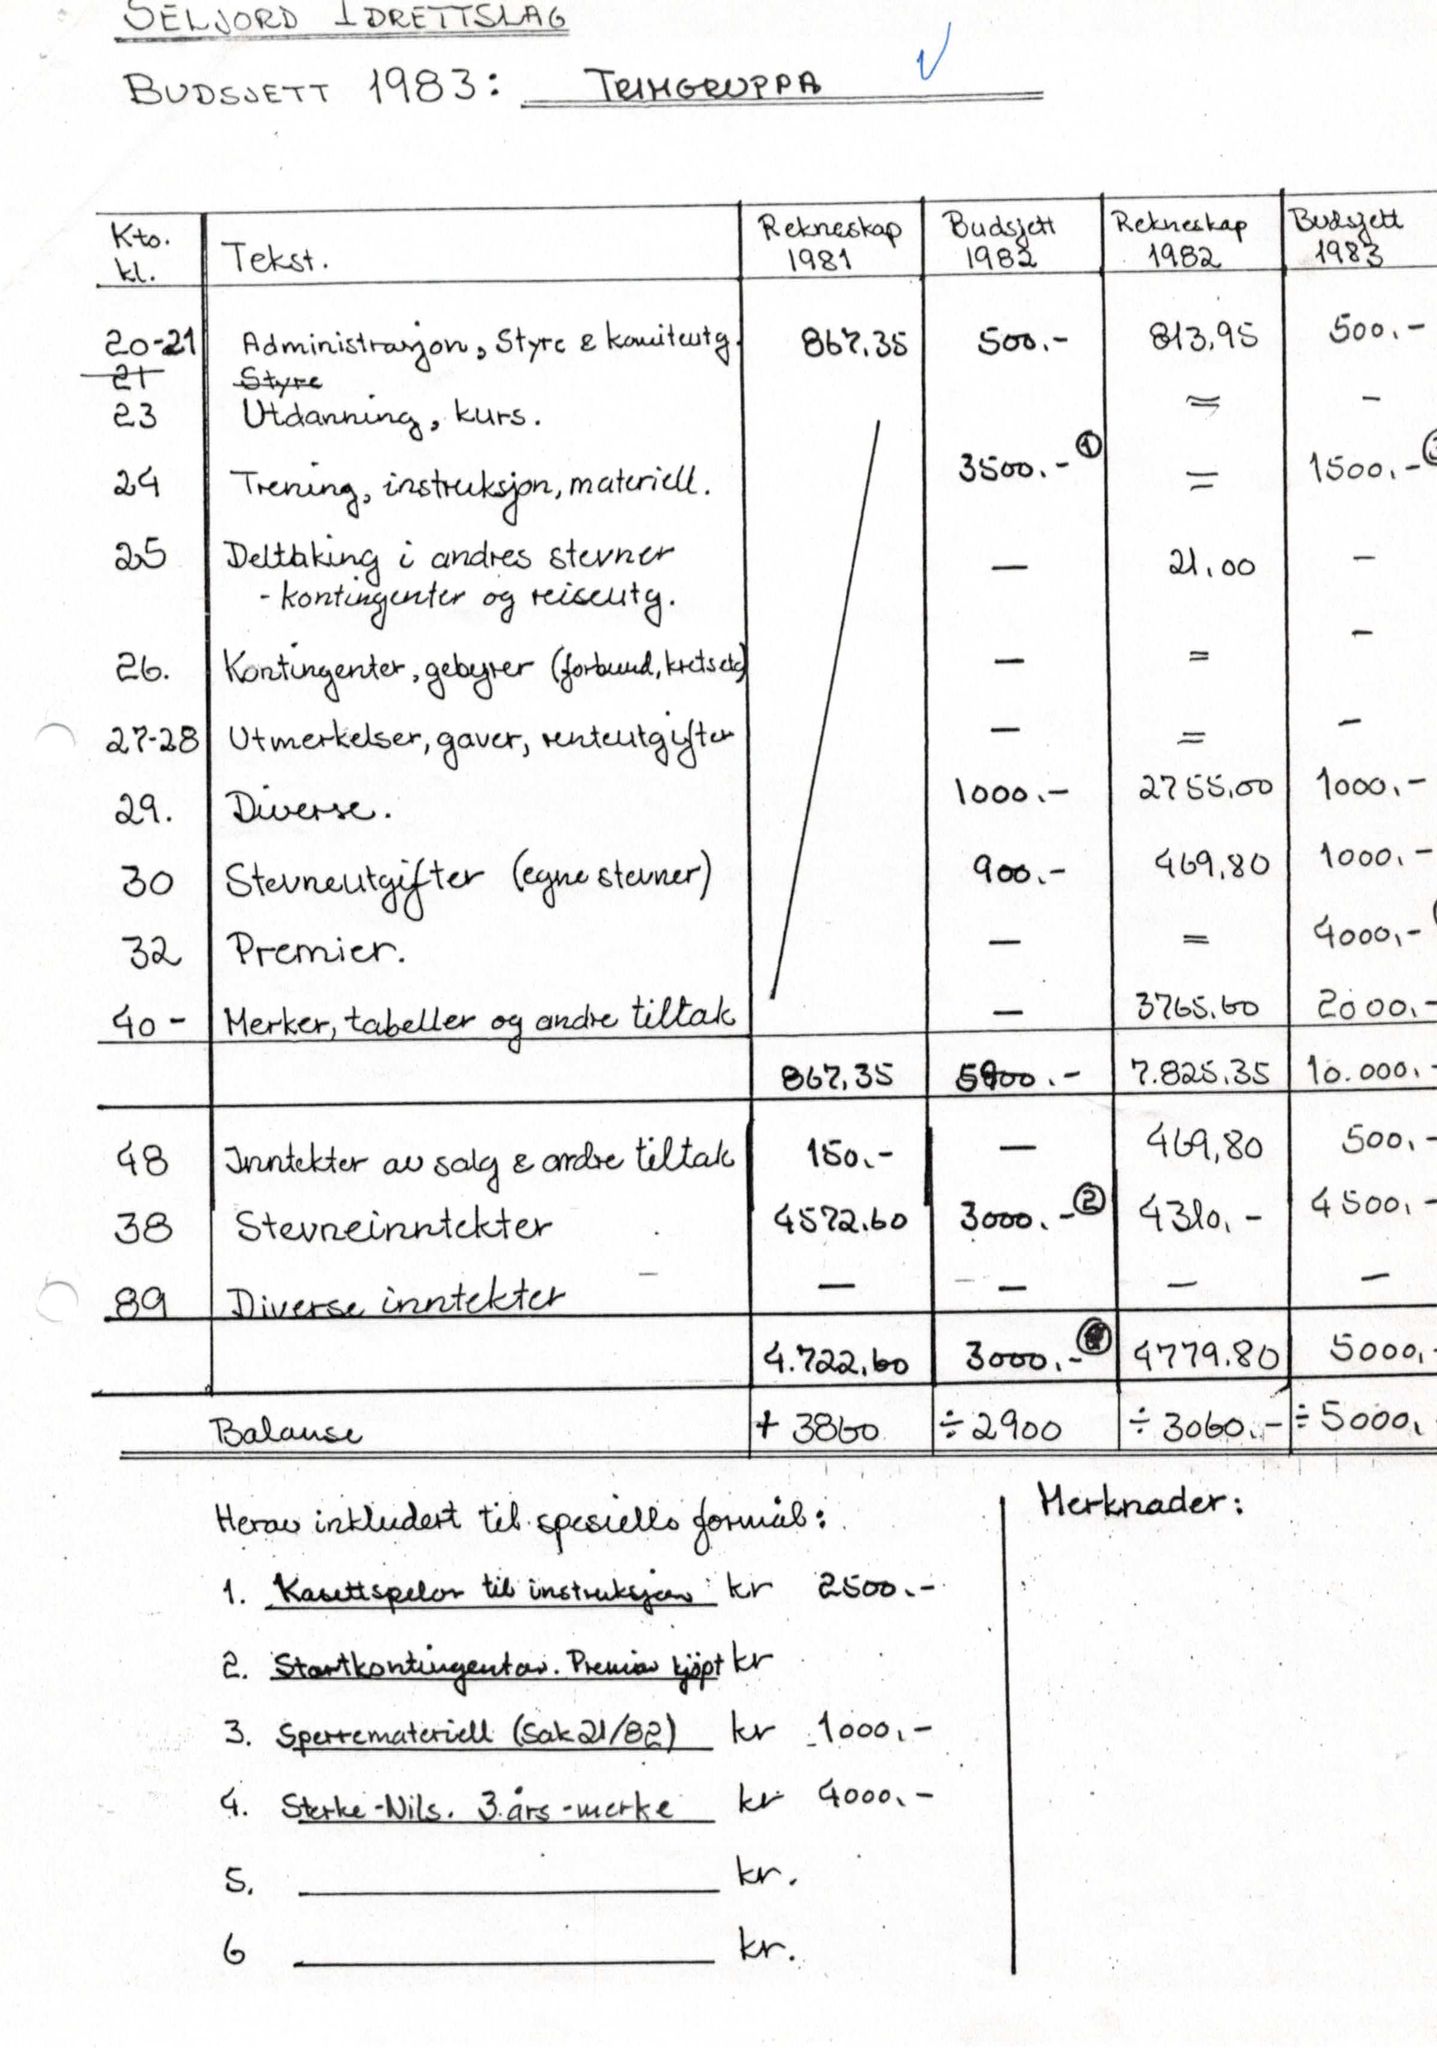 SELJORD IDRETTSLAG
BUDSJETT 1983: TRIMGRUPPA
Kto. kl. Tekst. Rekneskap 1981 Budsjett 1982 Rekneskap 1982 Budsjett 1983
20-21 Administrasjon, Styre & komiteutg. 867,35 500.- 813,95 500.-
21 Styre
23 Utdanning, kurs. = -
24 Trening, instruksjon, materiell. 3500.- ① = 1500.-
25 Deltaking i andres stevner — 21,00 -
- kontingenter og reiseutg.
26. Kontingenter, gebyrer (forbund, krets etc) — = -
27-28 Utmerkelser, gaver, renteutgifter — = -
29. Diverse. 1000.- 2755,00 1000.-
30 Stevneutgifter (egne stevner) 900.- 469,80 1000.-
32 Premier. — = 4000,-
40- Merker, tabeller og andre tiltak — 3765,60 2000,-
867,35 5900.- 7.825,35 10.000,-
48 Inntekter av salg & andre tiltak 150.- — 469,80 500,-
38 Stevneinntekter 4572,60 3000.- ② 4310,- 4500,-
89 Diverse inntekter — — — —
4.722,60 3000,- 4779,80 5000,-
Balanse + 3860 ÷ 2900 ÷ 3060.- ÷ 5000,
Herav inkludert til spesielle formål: Merknader:
1. Kasettspelar til instruksjon kr 2500.-
2. Startkontingentar. Premiar kjøpt kr
3. Sperremateriell (Sak 21/82) kr 1000,-
4. Sterke-Nils. 3.års-merke kr 4000,-
5. kr.
6 kr.